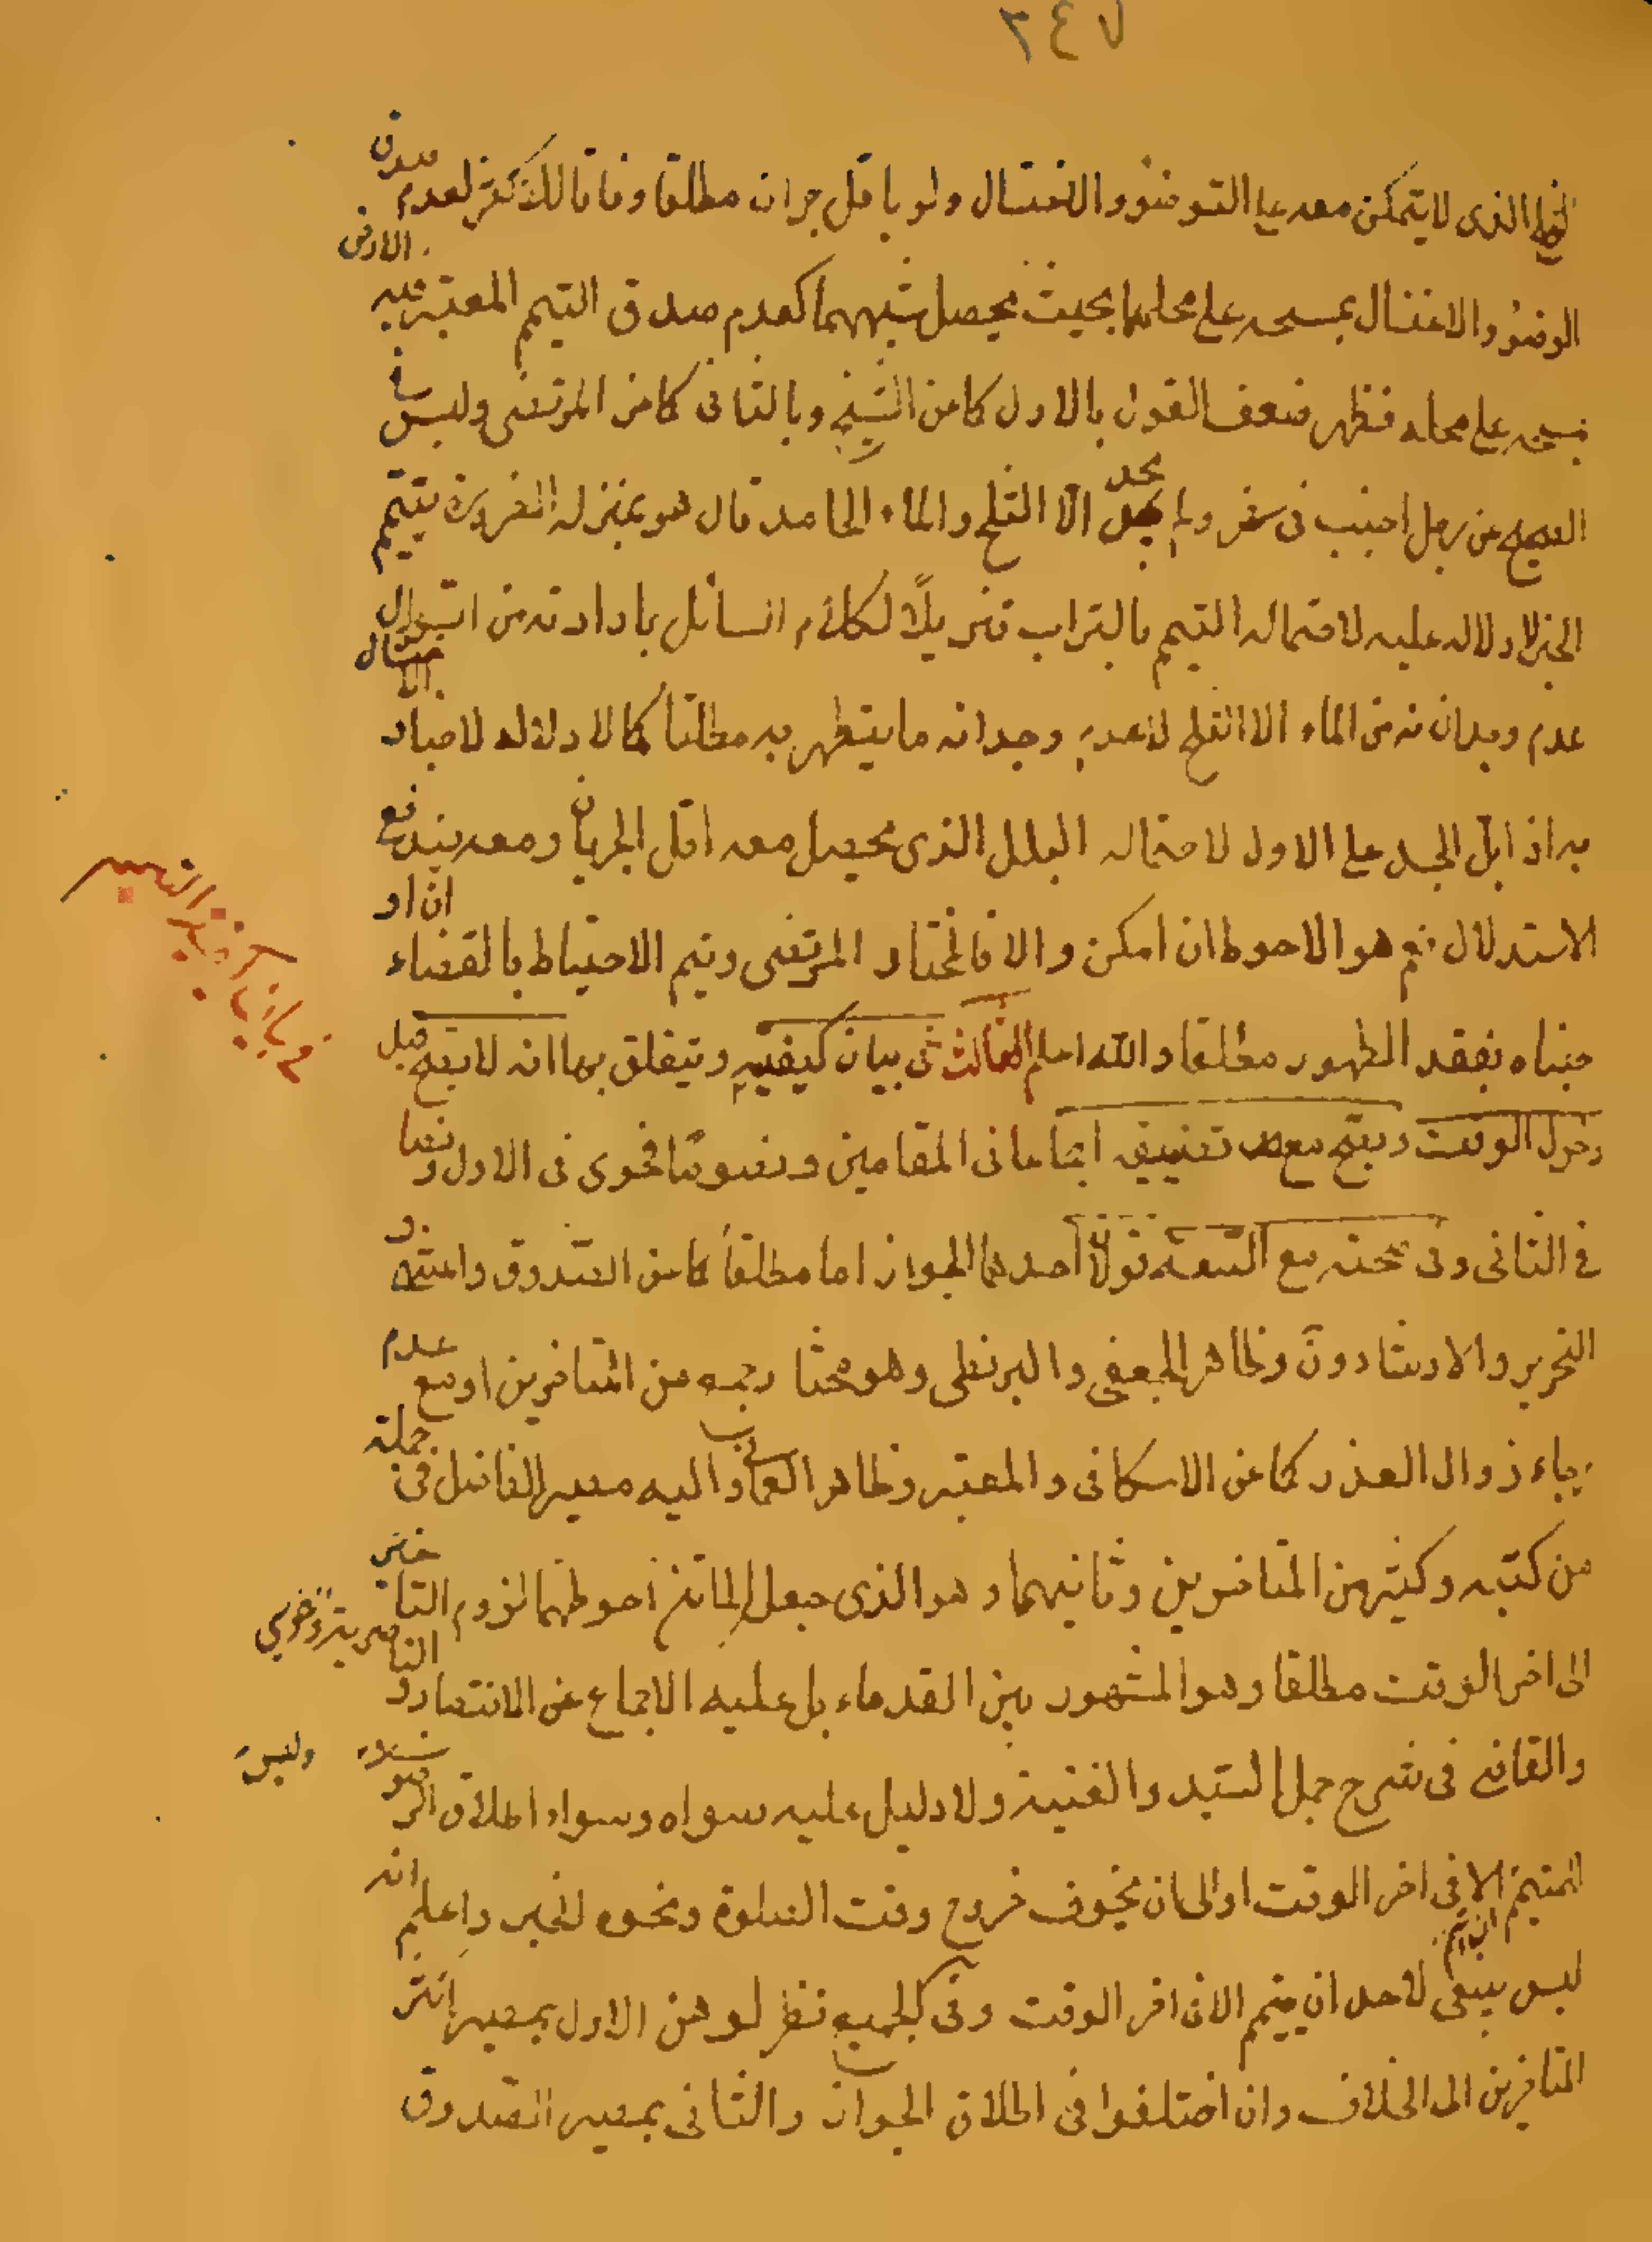 ٢٤٧
الثلج الذى لا يتمكن معه على التوضؤ والاغتسال ولو باقل جريان مطلقا وفاقا للاكثر لعدم صدق
الوضوء والاغتسال بمسحه على محلهما بحيث يحصل شبههما كعدم صدق التيمم المعتبر فيه الارض
بمسحه على محله فظهر ضعف القول بالاول كما عن الشيخ وبالثانى كما عن المرتضى وليس فى
الصحيح عن رجل اجنب فى سفر ولم يجد الا الثلج والماء الجامد قال هو بمنزلة الضرورة يتيمم
الخبر لا دلالة عليه لاحتماله التيمم بالتراب تنزيلا لكلام السائل بارادته من السؤال
عدم وجدانه من الماء الا الثلج لا عدم وجدانه ما يتطهر به مطلقا كما لا دلالة لاخبار الامتثال
به اذا بل الجسد على الاول لاحتماله البلل الذى يحصل معه اقل الجريان ومعه يندفع
الاستدلال نعم هو الاحوط ان امكن والا فالمختار المرتضى ويتم الاحتياط بالقضاء ان او
جبناه بفقد الطهور مطلقا والله اعلم الثالث فى بيان كيفيته ويتعلق بها انه لا يصح قبل
دخول الوقت ويصح مع تضييقه اجماعا فى المقامين ونصوصا فحوى فى الاول ونصا
فى الثانى وفى صحته مع السعة قولان احدهما الجواز اما مطلقا كما عن الصدوق والمنتهى و
التحرير والارشاد ون وظاهر الجعفى والبزنطى وهو مختار جمه من المتاخرين او مع عدم
رجاء زوال العذر كما عن الاسكافى والمعتبر وظاهر العمانى واليه مصير الفاضل فى جملة
من كتبه وكثير من المتاخرين وثانيهما وهو الذى جعل الماتن احوطهما لزوم التاخير
الى اخر الوقت مطلقا وهو المشهور بين القدماء بل عليه الاجماع عن الانتصار و الناصرية
والقاضى فى شرح جمل السيد والغنية ولا دليل عليه سواه وسواء اطلاق الرضوى وليس
للمتيمم ان يتيمم الا فى اخر الوقت او الى ان يتخوف خروج وقت الصلوة ونحوه الخبر واعلم انه
ليس ينبغى لاحد ان يتيمم الا فى اخر الوقت وفى كليهما نظر لوهن الاول بمصير اكثر
المتاخرين الى الخلاف وان اختلفوا فى اطلاق الجواز والثانى بمصير الصدوق